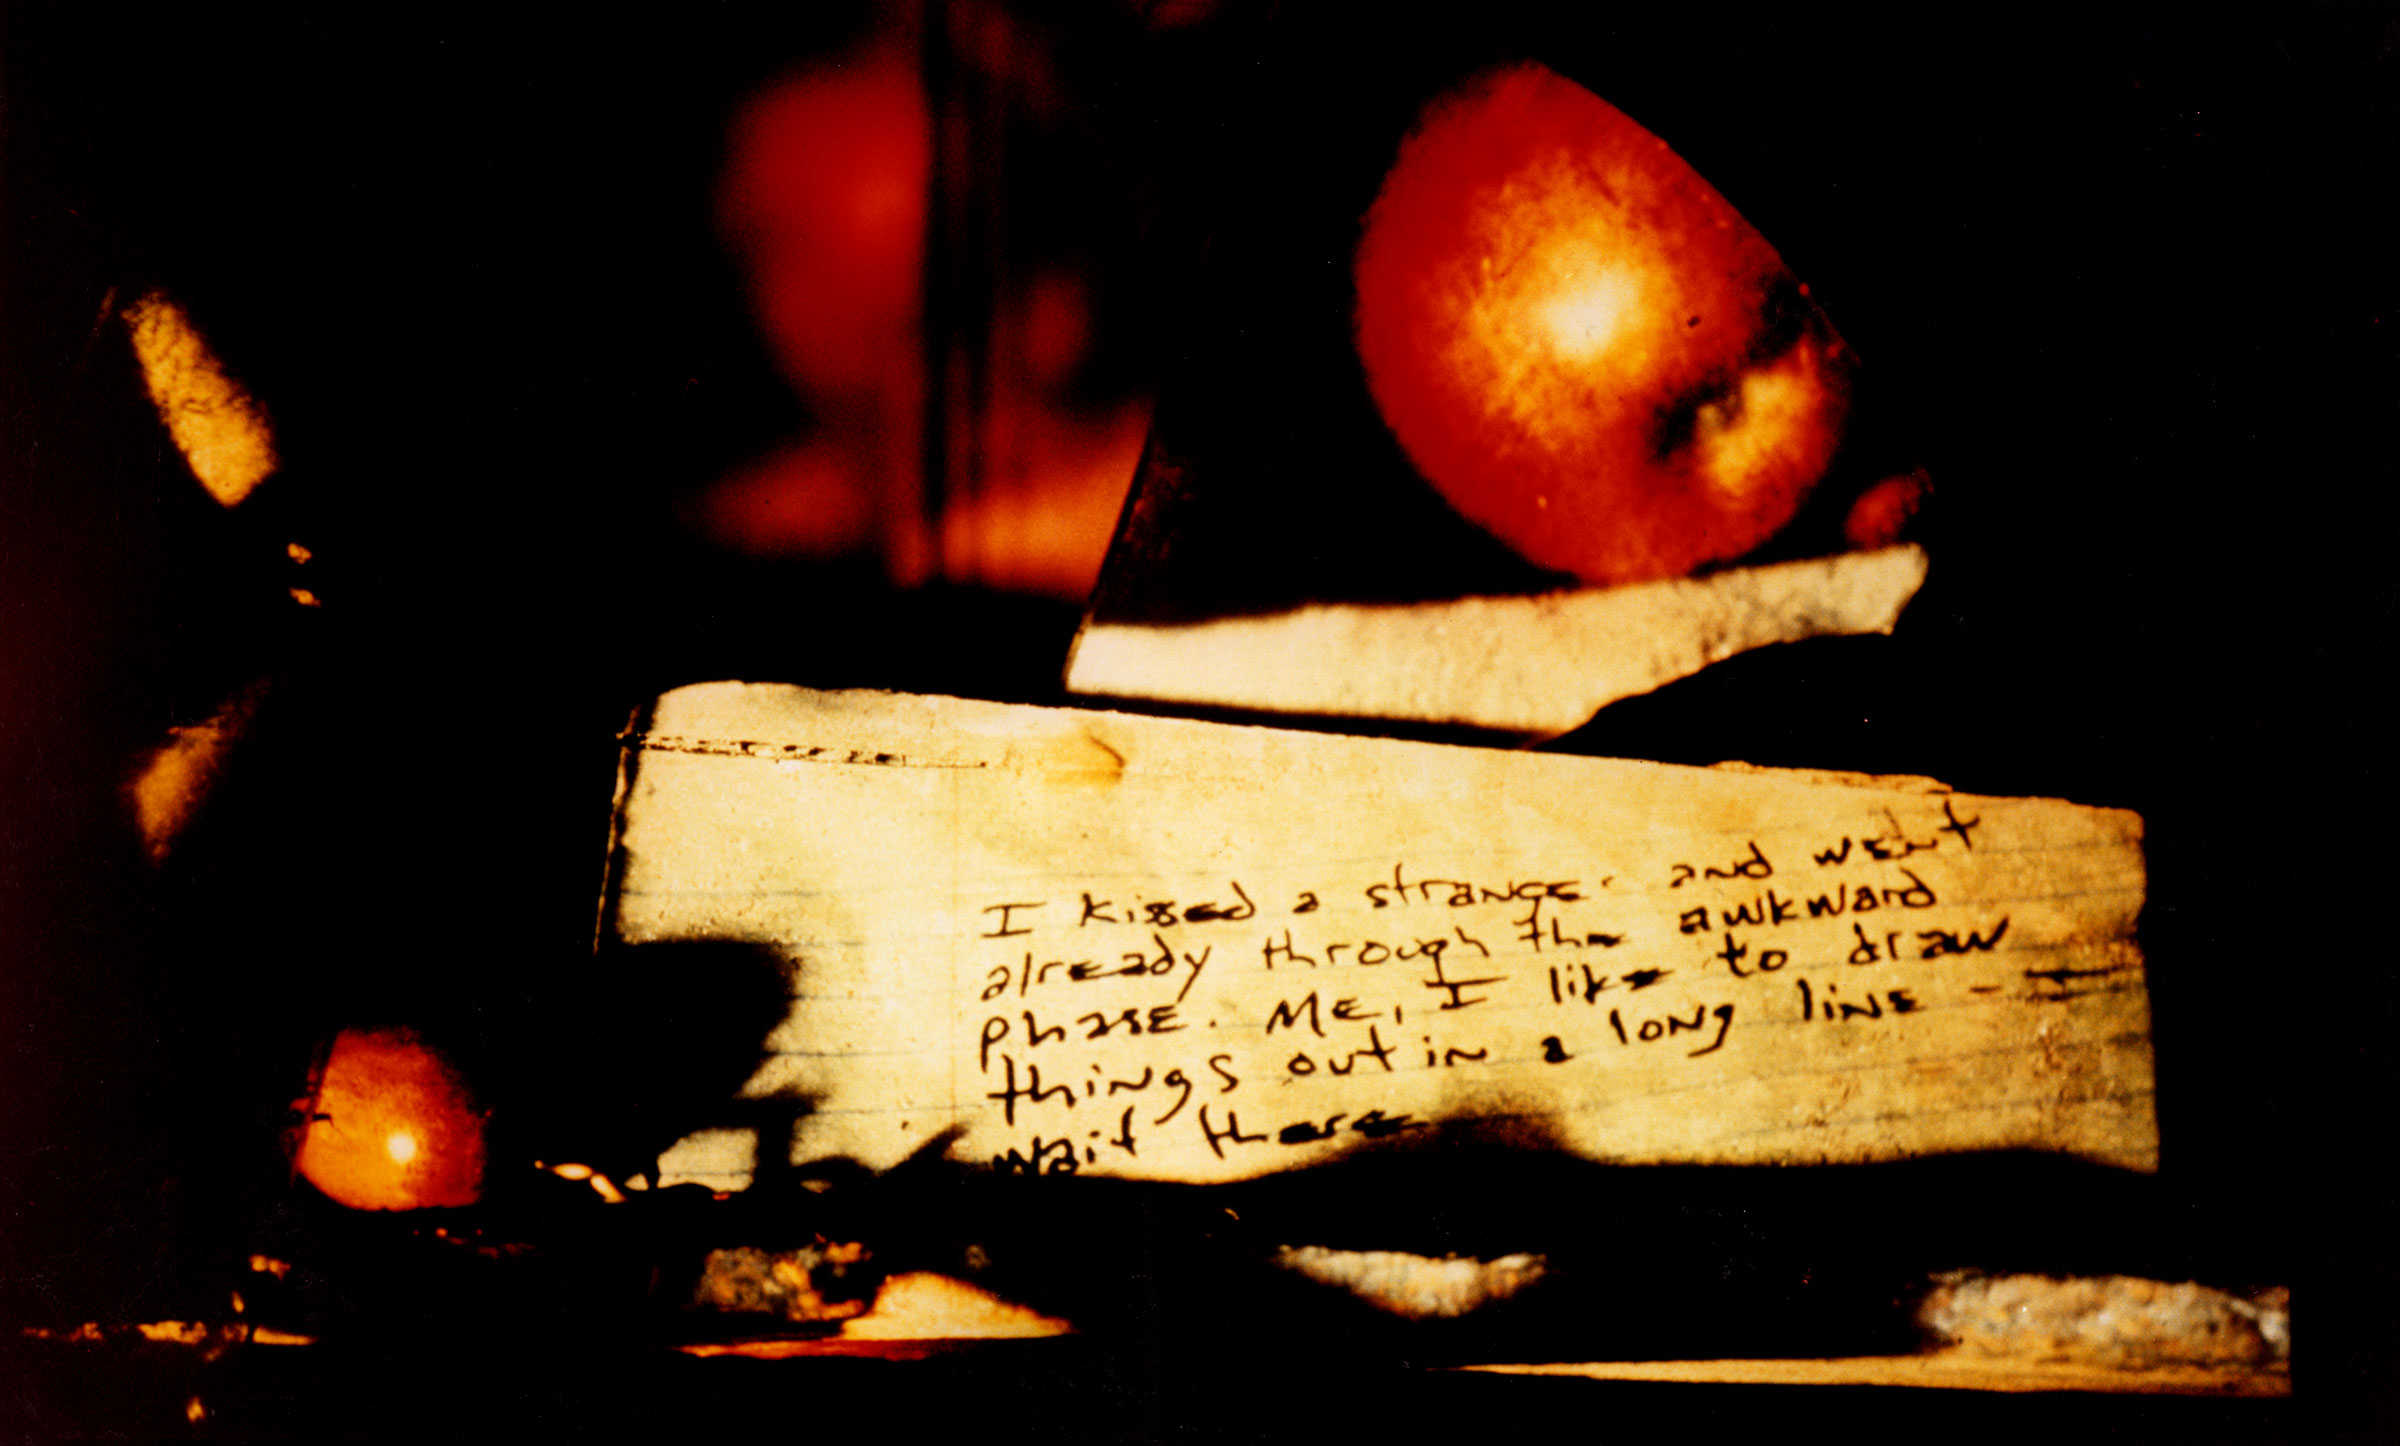 I kissed a strange and went
already through the awkward
phase. Me, I like to draw
things out in a long line -
wait there